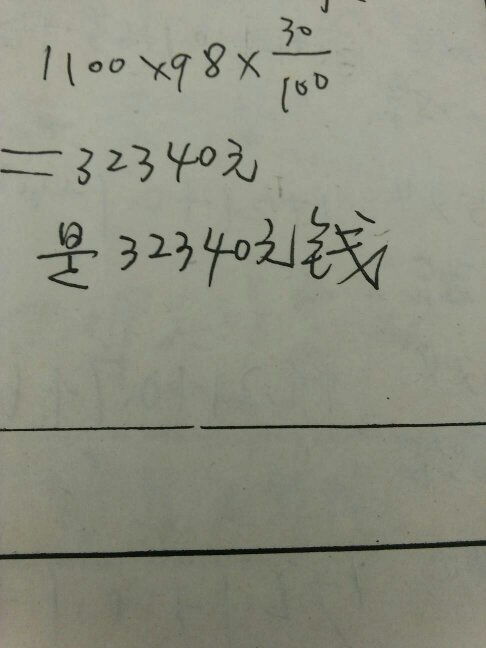 1100×98×30/100
=32340元
是32340元钱